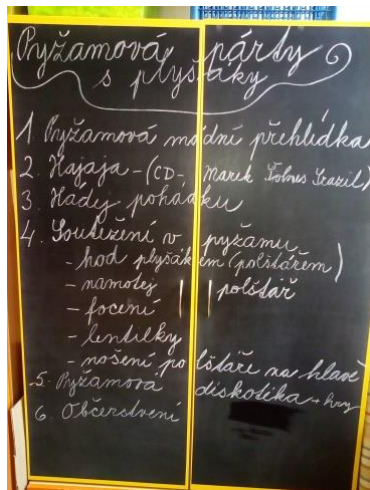 Pyžamová párty
s plyšáky
1. Pyžamová módní přehlídka
2. Hajaja - (CD - Marek Eben
3. Hady pohádku
4. Soutěžení v pyžamu
- hod plyšákem (polštářem)
- namotej polštář
- focení
- lentilky
- nošení polštáře na hlavě
5. Pyžamová diskotéka + hry
6. Občerstvení